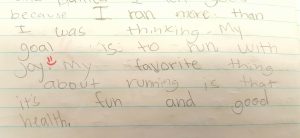 because I ran more than
I was thinking. My
goal is to run with
joy. My favorite thing
about runing is that
it's fun and good
health.